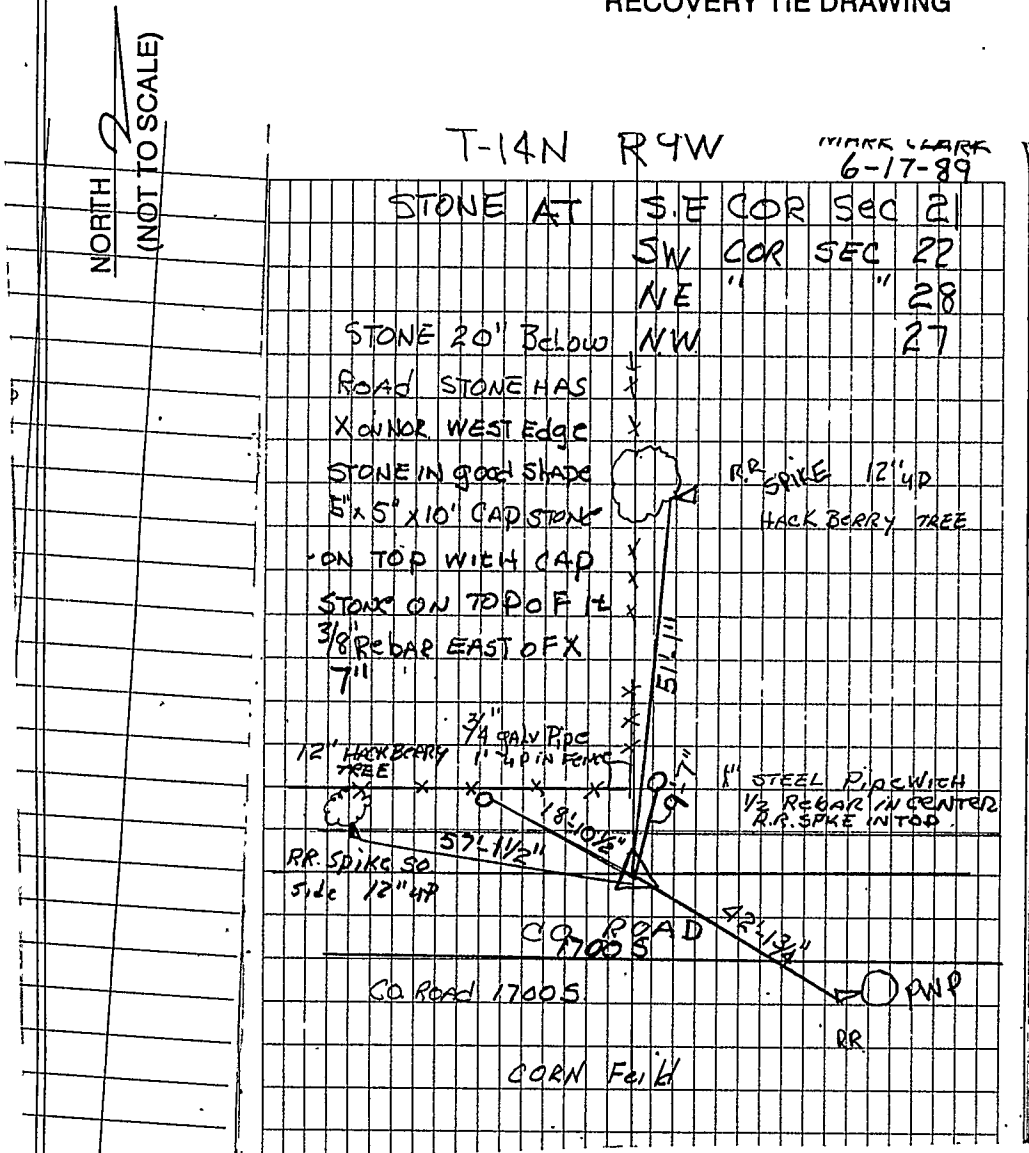 RECOVERY TIE DRAWING
NORTH
(NOT TO SCALE)
T-14N R9W
MARK CLARK
6-17-89
STONE AT S.E COR SEC 21
SW COR SEC 22
NE " " 28
NW 27
STONE 20" BELOW
ROAD STONE HAS
X ON NOR WEST Edge
STONE IN good SHAPE
5" x 5" x 10' CAP STONE
ON TOP WITH CAP
STONE ON TOP OF It
3/8" RebAR EAST OF X
7"
R.R. SPIKE 12" UP
HACK BERRY TREE
51'-1"
12" HACKBERRY
TREE
3/4" gALV PIPE
1" UP IN FENCE
9'-7"
1" STEEL PIPE WITH
1/2 REBAR IN CENTER
R.R. SPIKE IN TOP.
18'-10 1/2"
57'-1 1/2"
RR. SPIKE SO
Side 12" UP
CO. ROAD
1700 S
42'-1 3/4"
CO. ROAD 1700 S
PWP
RR
CORN Feild